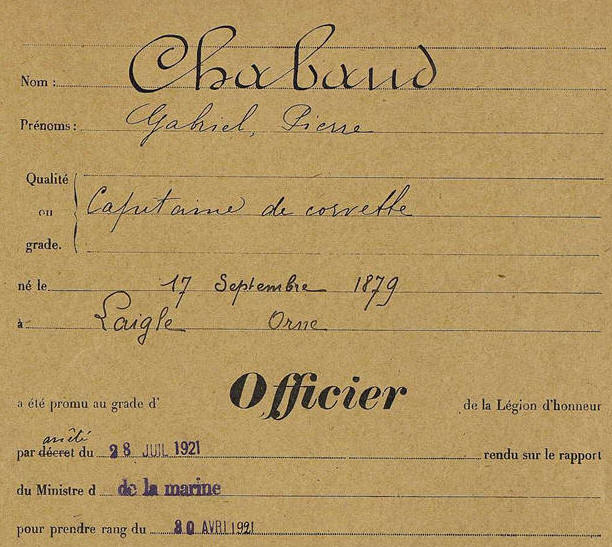 Nom : Chabaud
Prénoms : Gabriel, Pierre
Qualité
ou Capitaine de corvette
grade.
né le 17 Septembre 1879
à Laigle Orne
a été promu au grade d' Officier de la Légion d'honneur
arrêté
par décret du 28 JUIL 1921 rendu sur le rapport
du Ministre d de la marine
pour prendre rang du 30 AVRI 1921